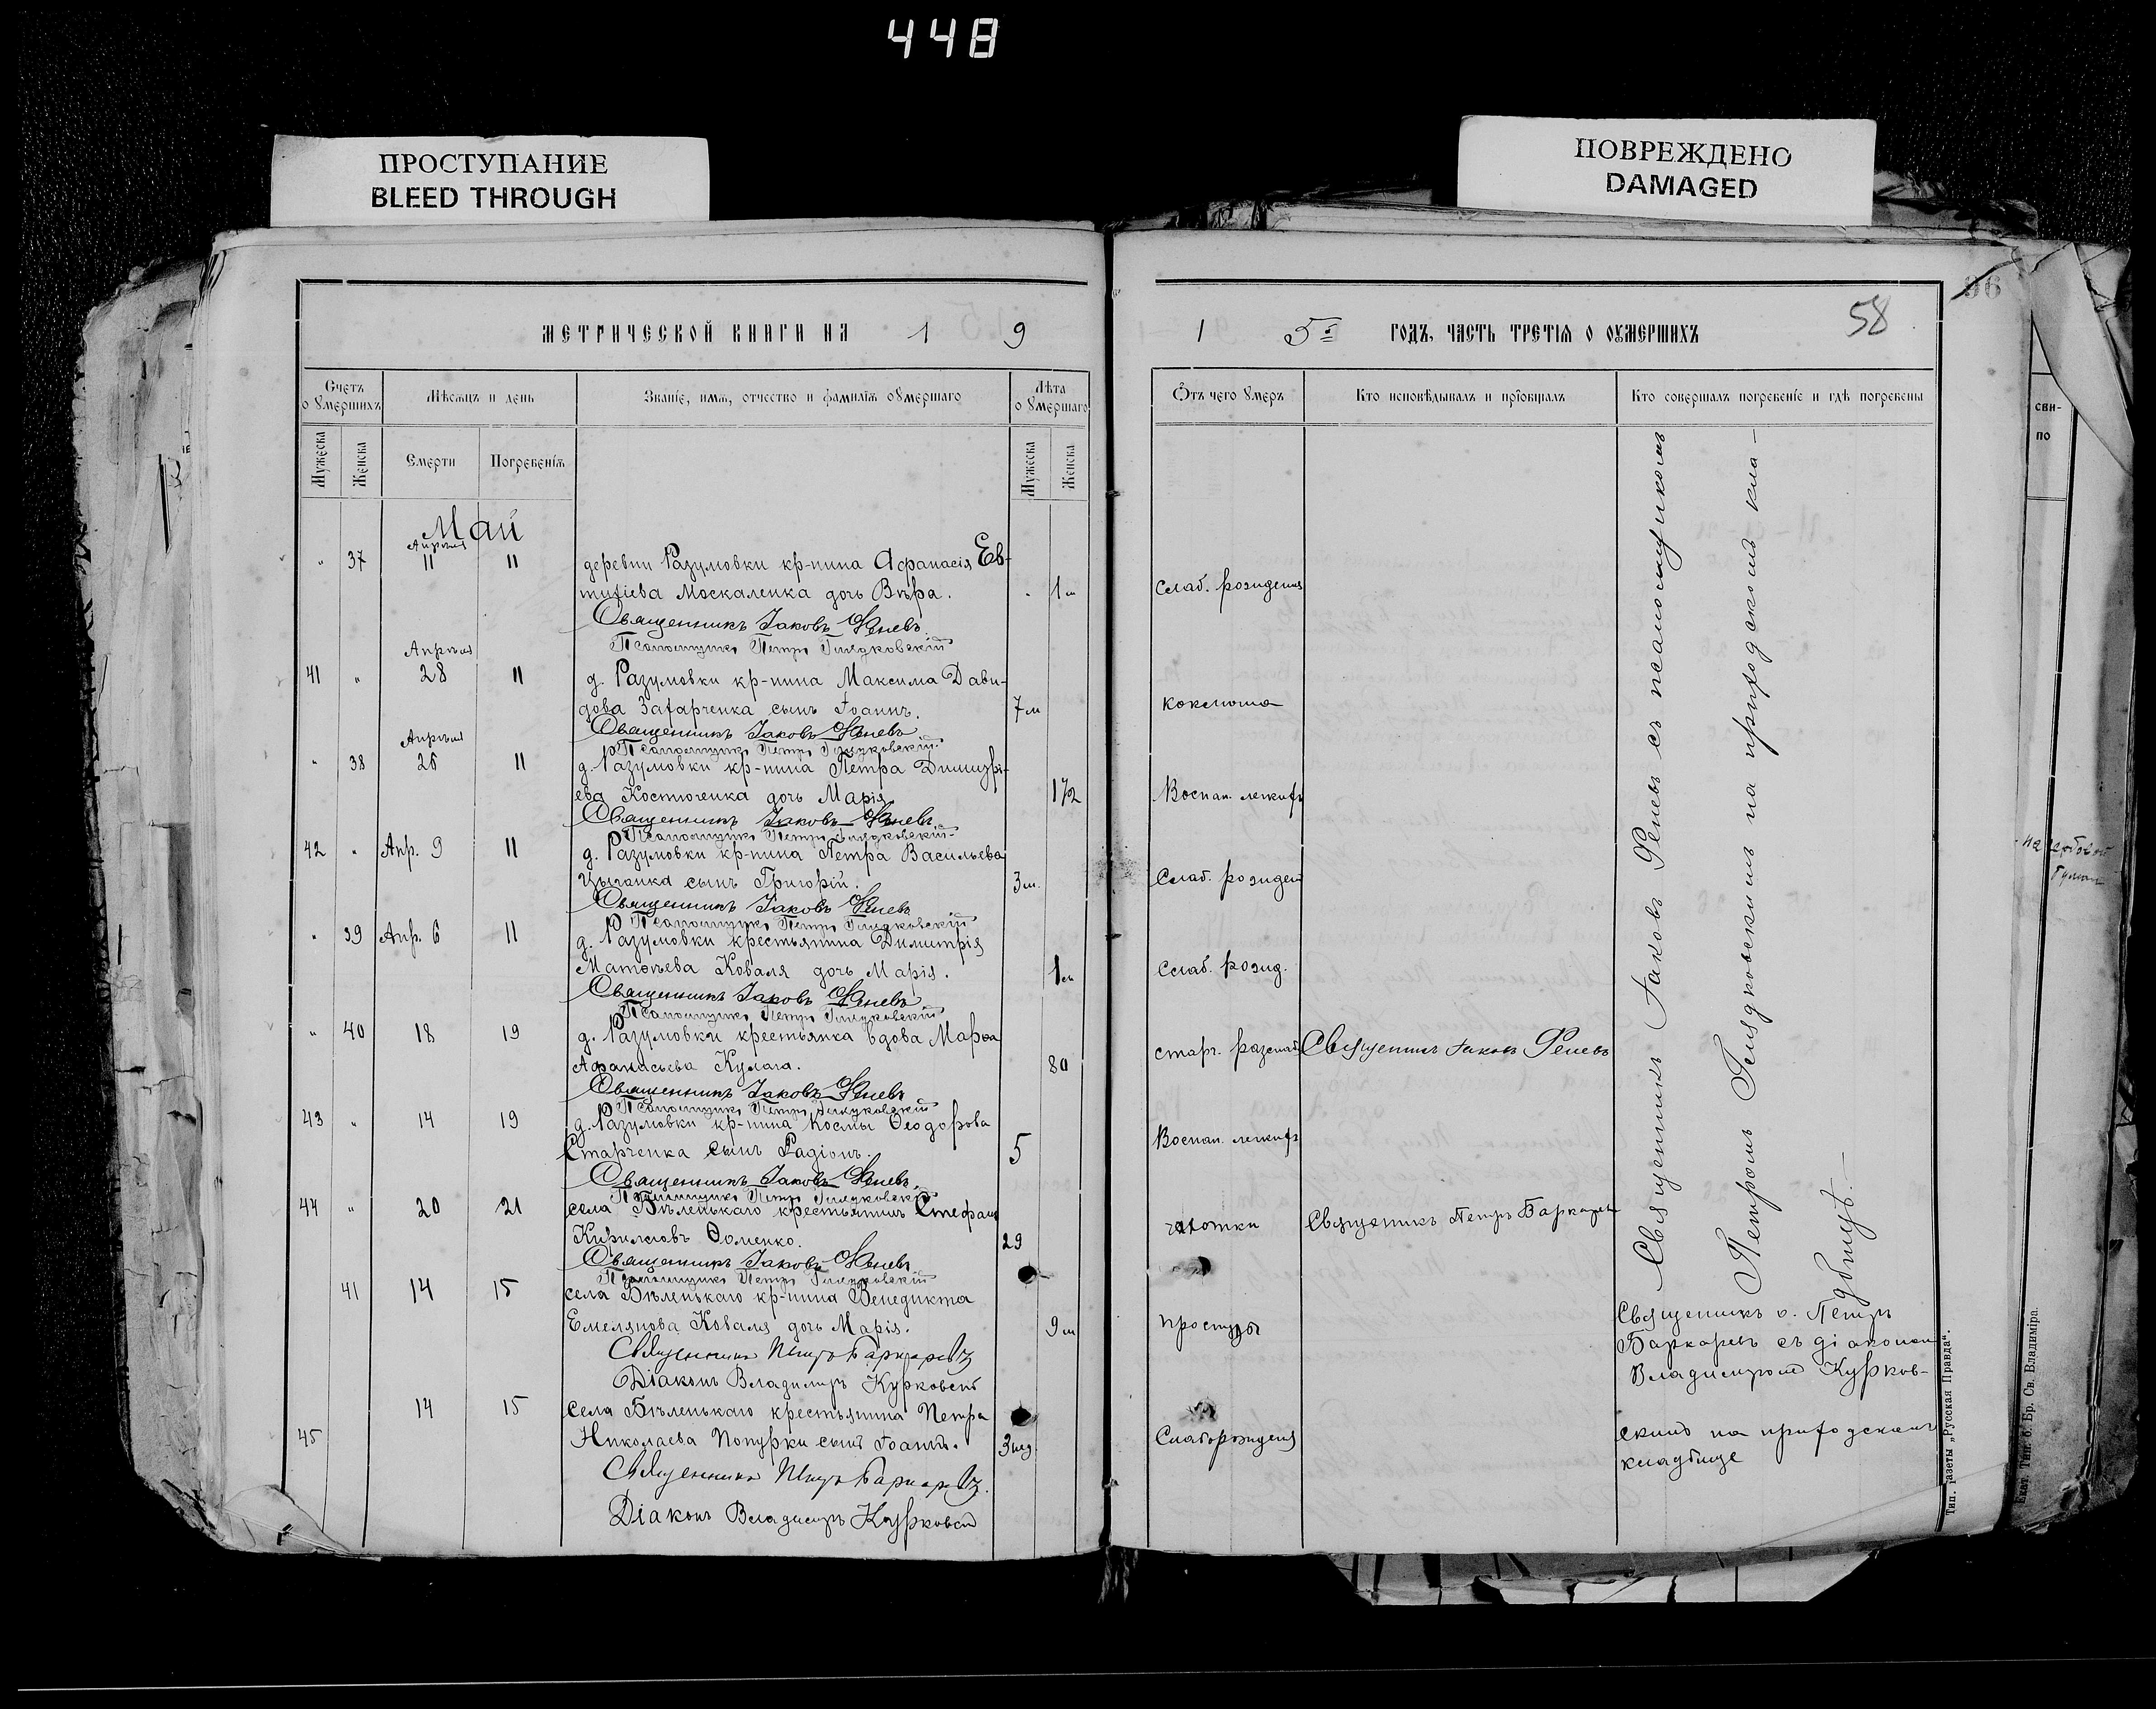 448
ПРОСТУПАНИЕ
BLEED THROUGH
ПОВРЕЖДЕНО
DAMAGED
96
МЕТРИЧЕСКОЙ КНИГИ НА 1 9
1 5й ГОДЪ, ЧАСТЬ ТРЕТІѦ О ОУМЕРШИХЪ
58
Счетъ о умершихъ
Мѣсѧцъ и день
Званіе, имѧ, отчество и фамиліѧ оумершаго
Лѣта о умершаго
Отъ чего умеръ
Кто исповѣдывалъ и пріобщалъ
Кто совершалъ погребеніе и гдѣ погребены
Мужеска
Женска
Смерти
Погребеніѧ
Мужеска
Женска
сви-
по
Май
Апрѣля
" 37 11 11 деревни Разумовки кр-нина Афанасія Ев-
тихіева Москаленка дочь Вѣра. " 1 м слаб. рожденія
Священникъ Іаковъ Феневъ
Псаломщикъ Петръ Гиляковскій
Апрѣля
41 " 28 11 д. Разумовки кр-нина Максима Дави-
дова Захарченка сынъ Іоаннъ. 7 м коклюша
Священникъ Іаковъ Феневъ
Апрѣля
Псаломщикъ Петръ
" 38 26 11 д. Разумовки кр-нина Петра Димитрі-
ева Костюченка дочь Марія 1 1/2 Воспал. легкихъ
Священникъ Іаковъ Феневъ
Псаломщикъ Петръ
42 " Апр. 9 11 д. Разумовки кр-нина Петра Васильева
Цыганка сынъ Григорій. 3 м. Слаб. рожден
Священникъ Іаковъ Феневъ
Псаломщикъ Петръ
" 39 Апр. 6 11 д. Разумовки крестьянина Димитрія
Матѳѣева Коваля дочь Марія. 1 м Слаб. рожд.
Священникъ Іаковъ Феневъ
Псаломщикъ Петръ
" 40 18 19 д. Разумовки крестьянка вдова Марѳа
Афанасьева Кулага. 80 старч. Священникъ Іаковъ Феневъ
Священникъ Іаковъ Феневъ
Псаломщикъ Петръ
43 " 14 19 д. Разумовки кр-нина Космы Ѳеодорова
Старченка сынъ Радіонъ. 5 Воспал. легкихъ
Священникъ Іаковъ Феневъ.
Псаломщикъ Петръ
44 " 20 21 села Бѣленькаго крестьянинъ Стефанъ
Кирилловъ Ѳоменко. 29 чахотки Священникъ Петръ
Священникъ Іаковъ Феневъ
Псаломщикъ Петръ
41 14 15 села Бѣленькаго кр-нина Венедикта
Емелянова Коваля дочь Марія. 9 м простуды
Священникъ Петръ
Діаконъ Владимиръ
14 15 Села Бѣленькаго крестьянина Петра
45 Николаева Попурки сынъ Іоаннъ. 3 нед. Слаборожденія
Священникъ Петръ
Діаконъ Владимиръ
Священникъ Іаковъ Феневъ съ псаломщикомъ
Петромъ на приходскомъ кла-
дбищѣ. —
Священникъ о. Петръ
съ діакономъ
Владимиром Курков-
скимъ на приходскомъ
кладбище
Тип. газеты „Русская Правда“.
Екат. Тип. б. Бр. Св. Владиміра.